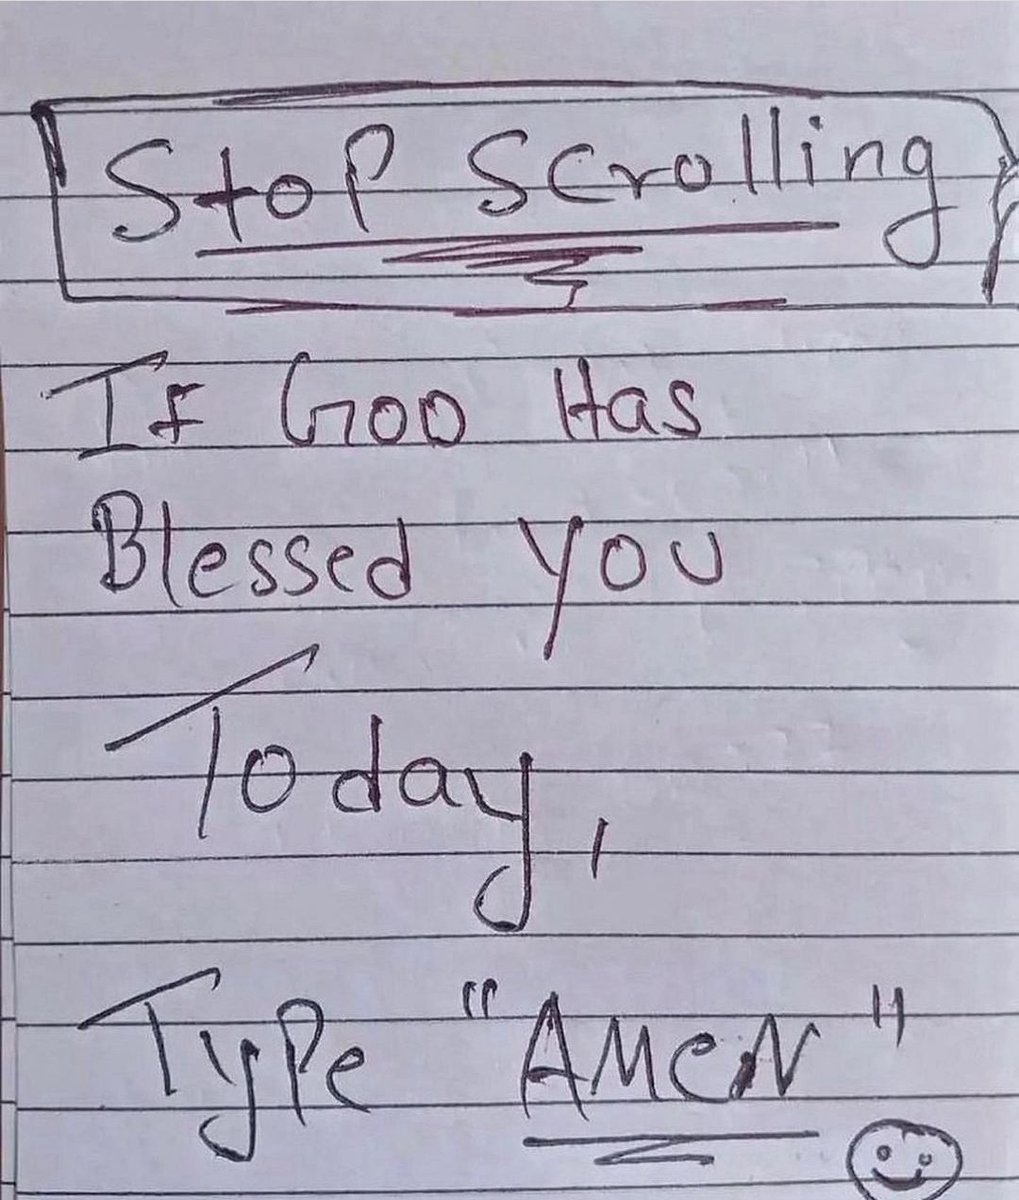 Stop Scrolling
If God Has
Blessed you
Today,
Type "AMeN"